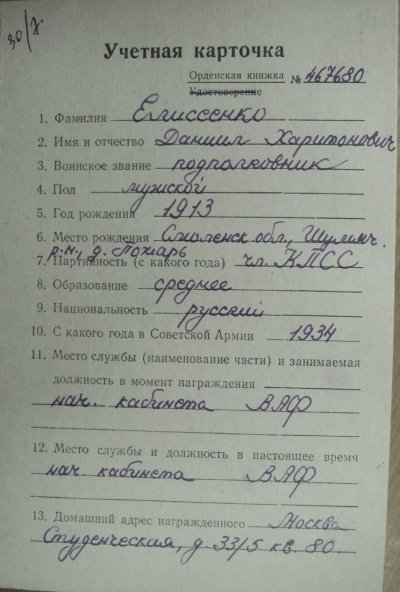 30/7
Учетная карточка
Орденская книжка № 467680
Удостоверение
1. Фамилия Елисеенко
2. Имя и отчество Даниил Харитонович
3. Воинское звание подполковник
4. Пол мужской
5. Год рождения 1913
6. Место рождения Смоленск обл., Шумяч.
р-н, д. Пожарь
7. Партийность (с какого года) чл. КПСС
8. Образование среднее
9. Национальность русский
10. С какого года в Советской Армии 1934
11. Место службы (наименование части) и занимаемая
должность в момент награждения
нач. кабинета ВАФ
12. Место службы и должность в настоящее время
нач. кабинета ВАФ
13. Домашний адрес награжденного Москва
Студенческая, д. 33/5 кв. 80.